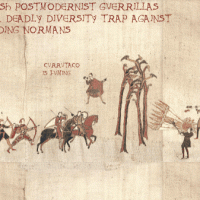 Sh POSTMODERNIST GUERRILLAS
DEADLY DIVERSITY TRAP AGAINST
DING NORMANS
CURRUTACO
IS LUMING